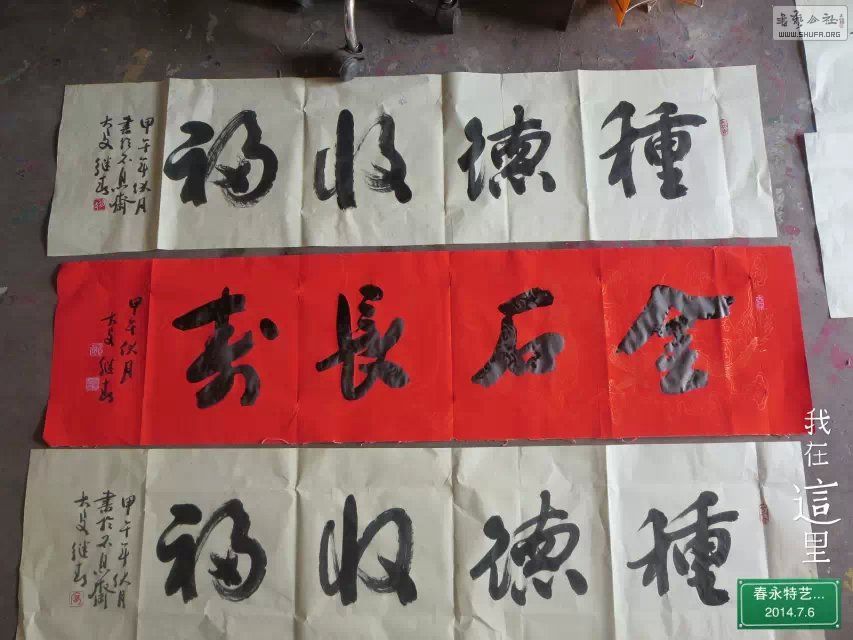 種德收福
甲午年伏月
書於不息齋
大吏继春
金石長壽
甲午伏月
大吏继春
種德收福
甲午年伏月
書於不息齋
大吏继春
書藝公社
WWW.SHUFA.ORG
我在這里
春永特艺...
2014.7.6